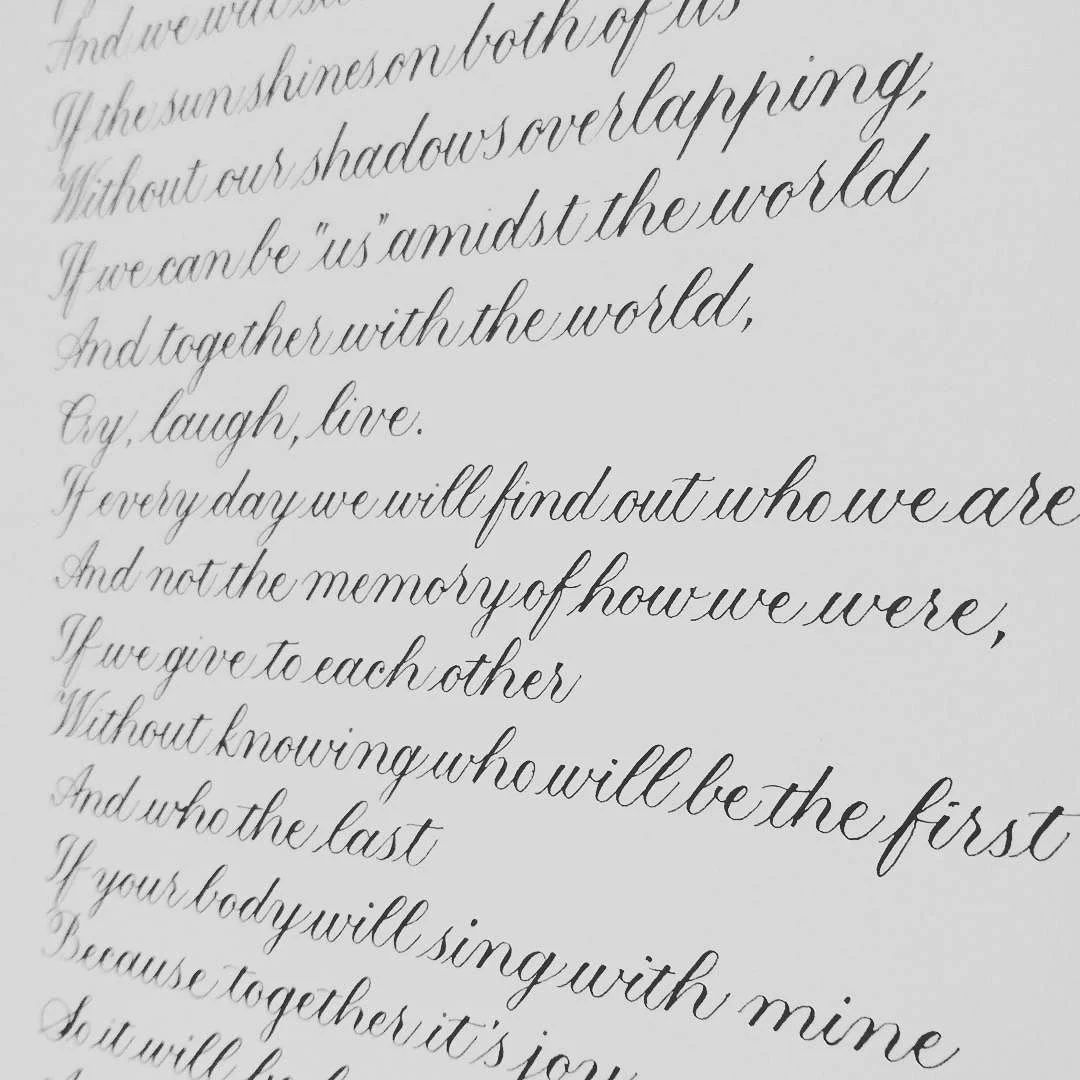 And we will
If the sun shines on both of us
Without our shadows overlapping,
If we can be "us" amidst the world
And together with the world,
Cry, laugh, live.
If every day we will find out who we are
And not the memory of how we were,
If we give to each other
Without knowing who will be the first
And who the last
If your body will sing with mine
Because together it's joy
So it will